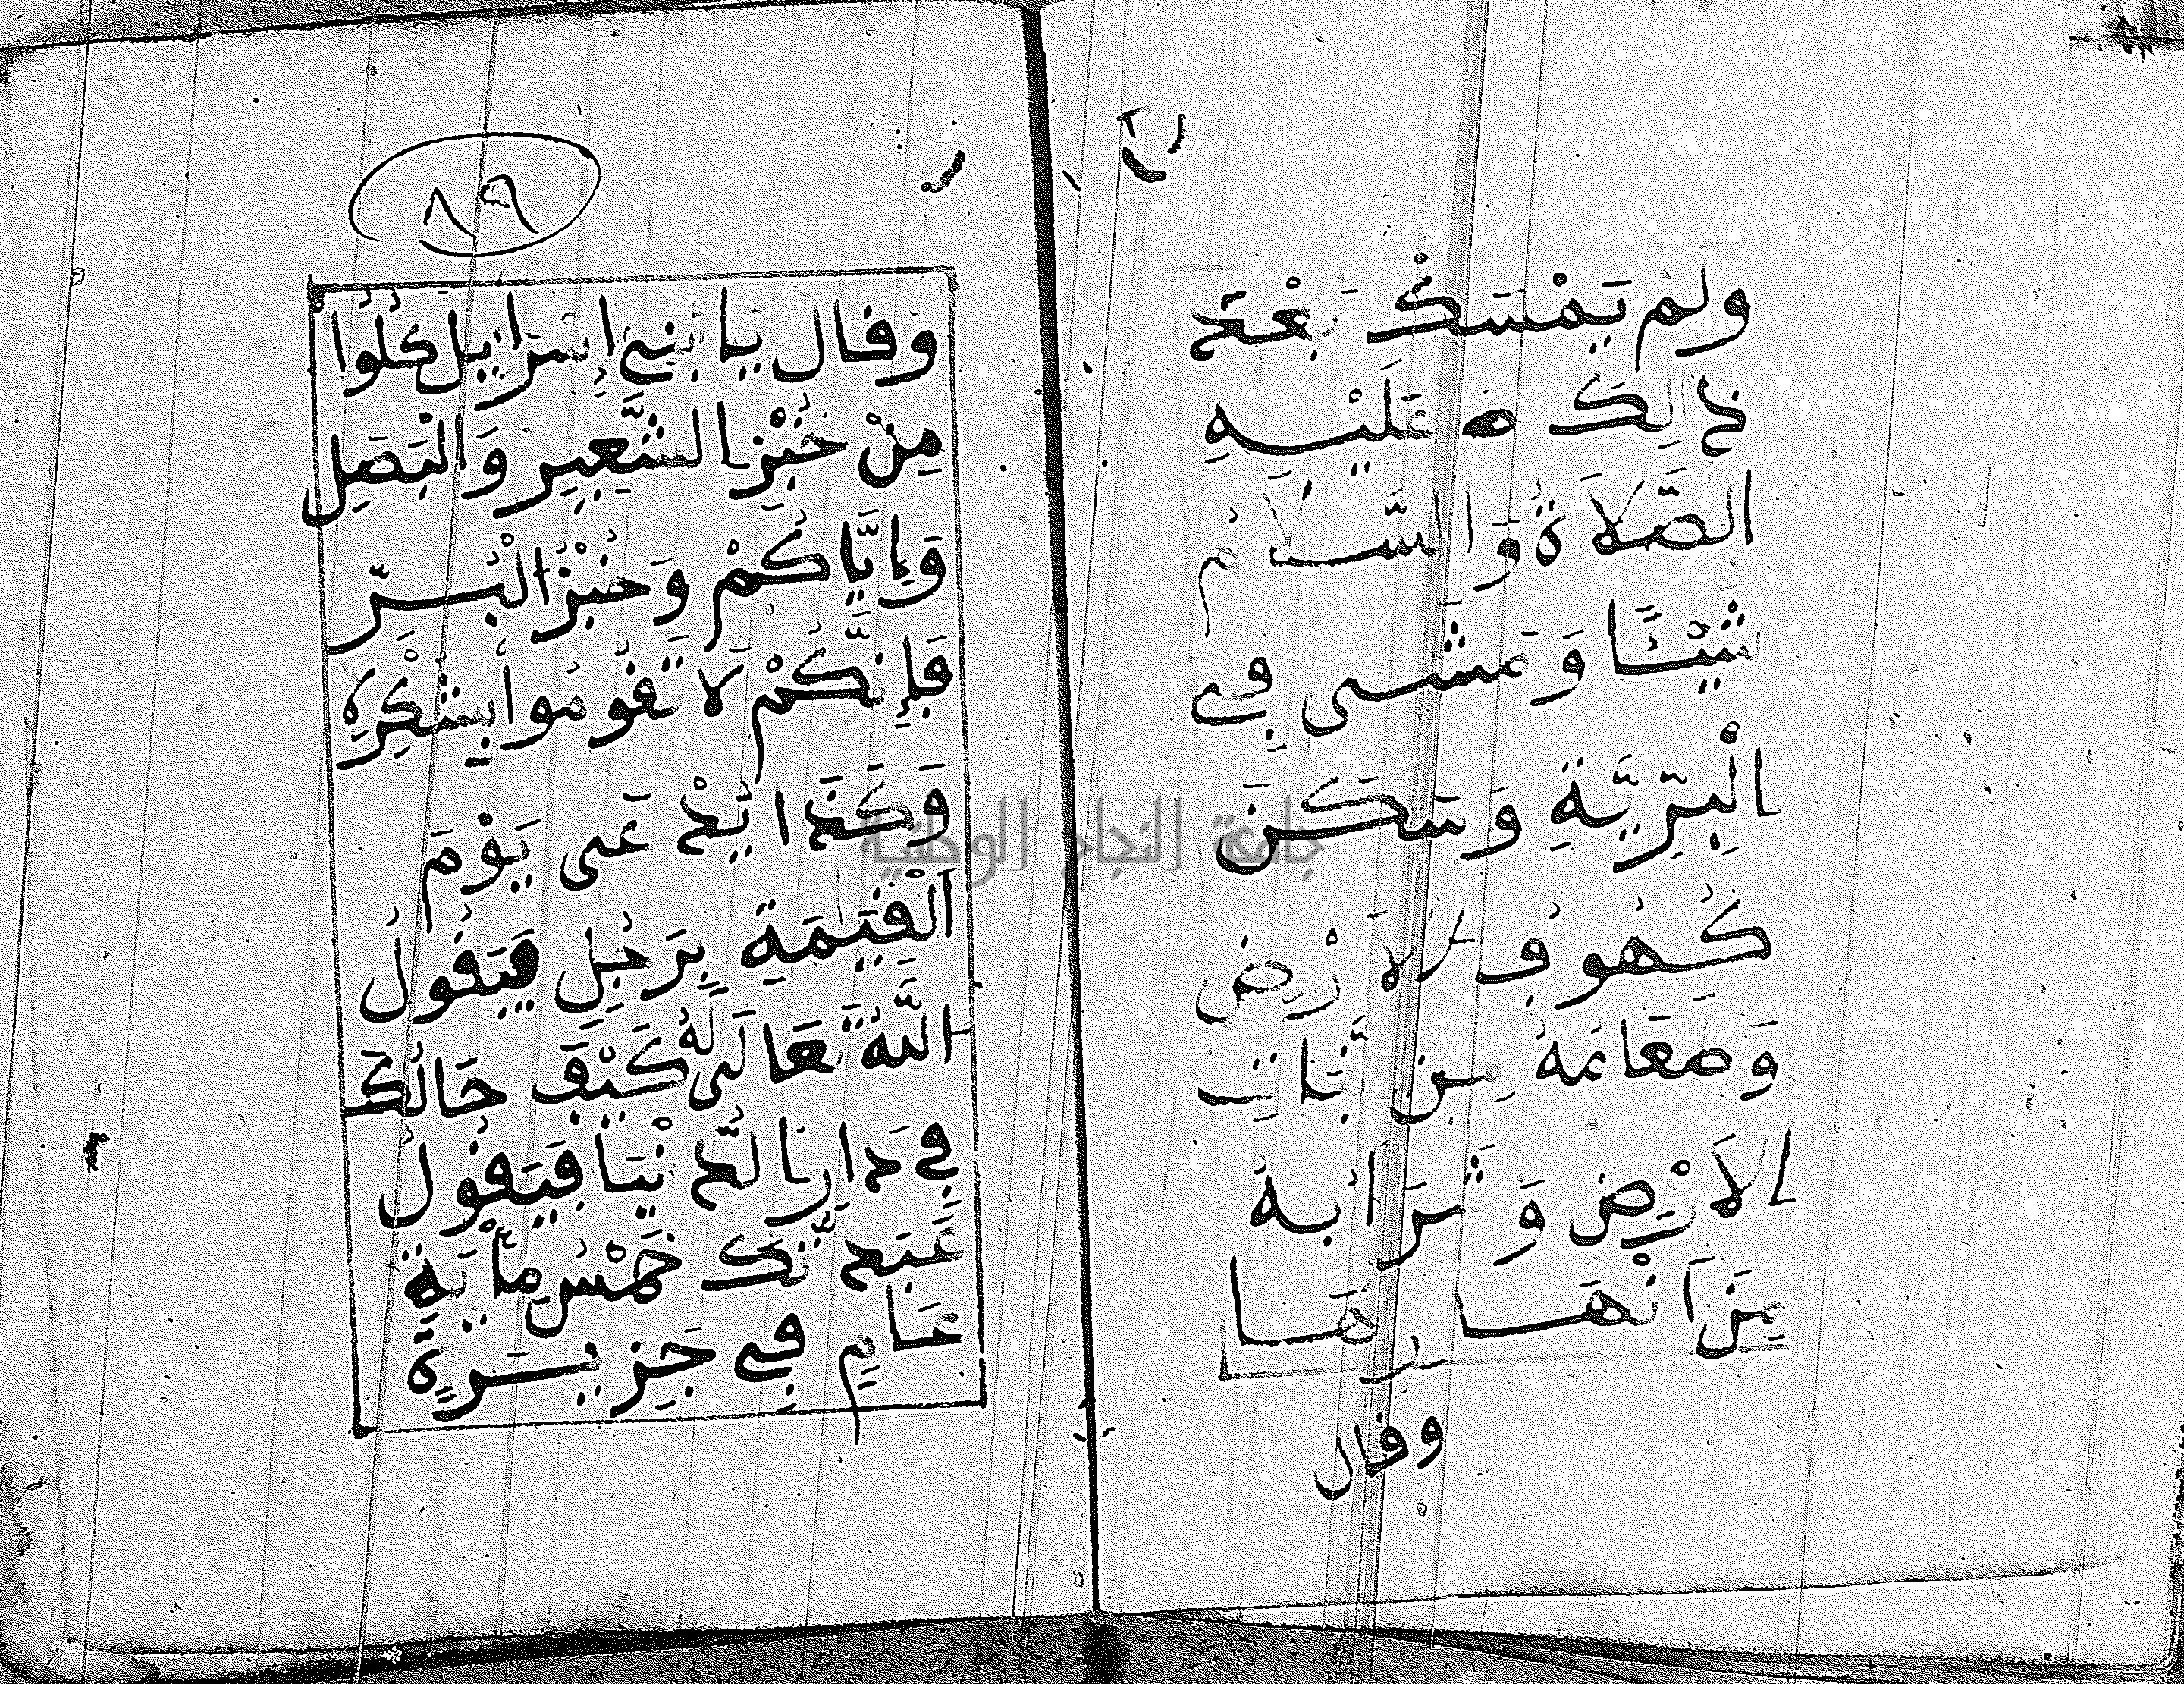 ولم يَمْسَكْ بَعْدَ
ذالِكَ عَلَيْهِ
الصَّلَاةُ وَالسَّلَامُ
شَيْئًا وَمَشَى فِي
الْبَرِّيَّةِ وَسَكَنَ
كُهُوفِ الْأَرْضِ
وَطَعَامُهُ مِن نَّبَاتِ
الْأَرْضِ وَشَرَابُهُ
مِنَ انْهَارِهَا
وقال
٨٩
وَقَال يَا بَنِي إِسْرَايِيل كُلُوا
مِنْ خُبْزِ الشَّعِيرِ وَالْبَصَلِ
وَإِيَّاكُمْ وَخُبْزَ الْبُرِّ
فَإِنَّكُمْ لَا تَقُومُوا بِشُكْرِهِ
وَكَذَا يُدْعَى يَوْمَ
الْقِيَمَةِ بِرَجُلٍ فَيَقُولُ
اللَّهُ تَعَالَى لَهُ كَيْفَ حَالُكَ
فِي دَارِ الدُّنْيَا فَيَقُولُ
عَبَدتُّكَ خَمْسُ مِأْيَةِ
عَامٍ فِي جَزِيرَةٍ
جامعة النجاح الوطنية